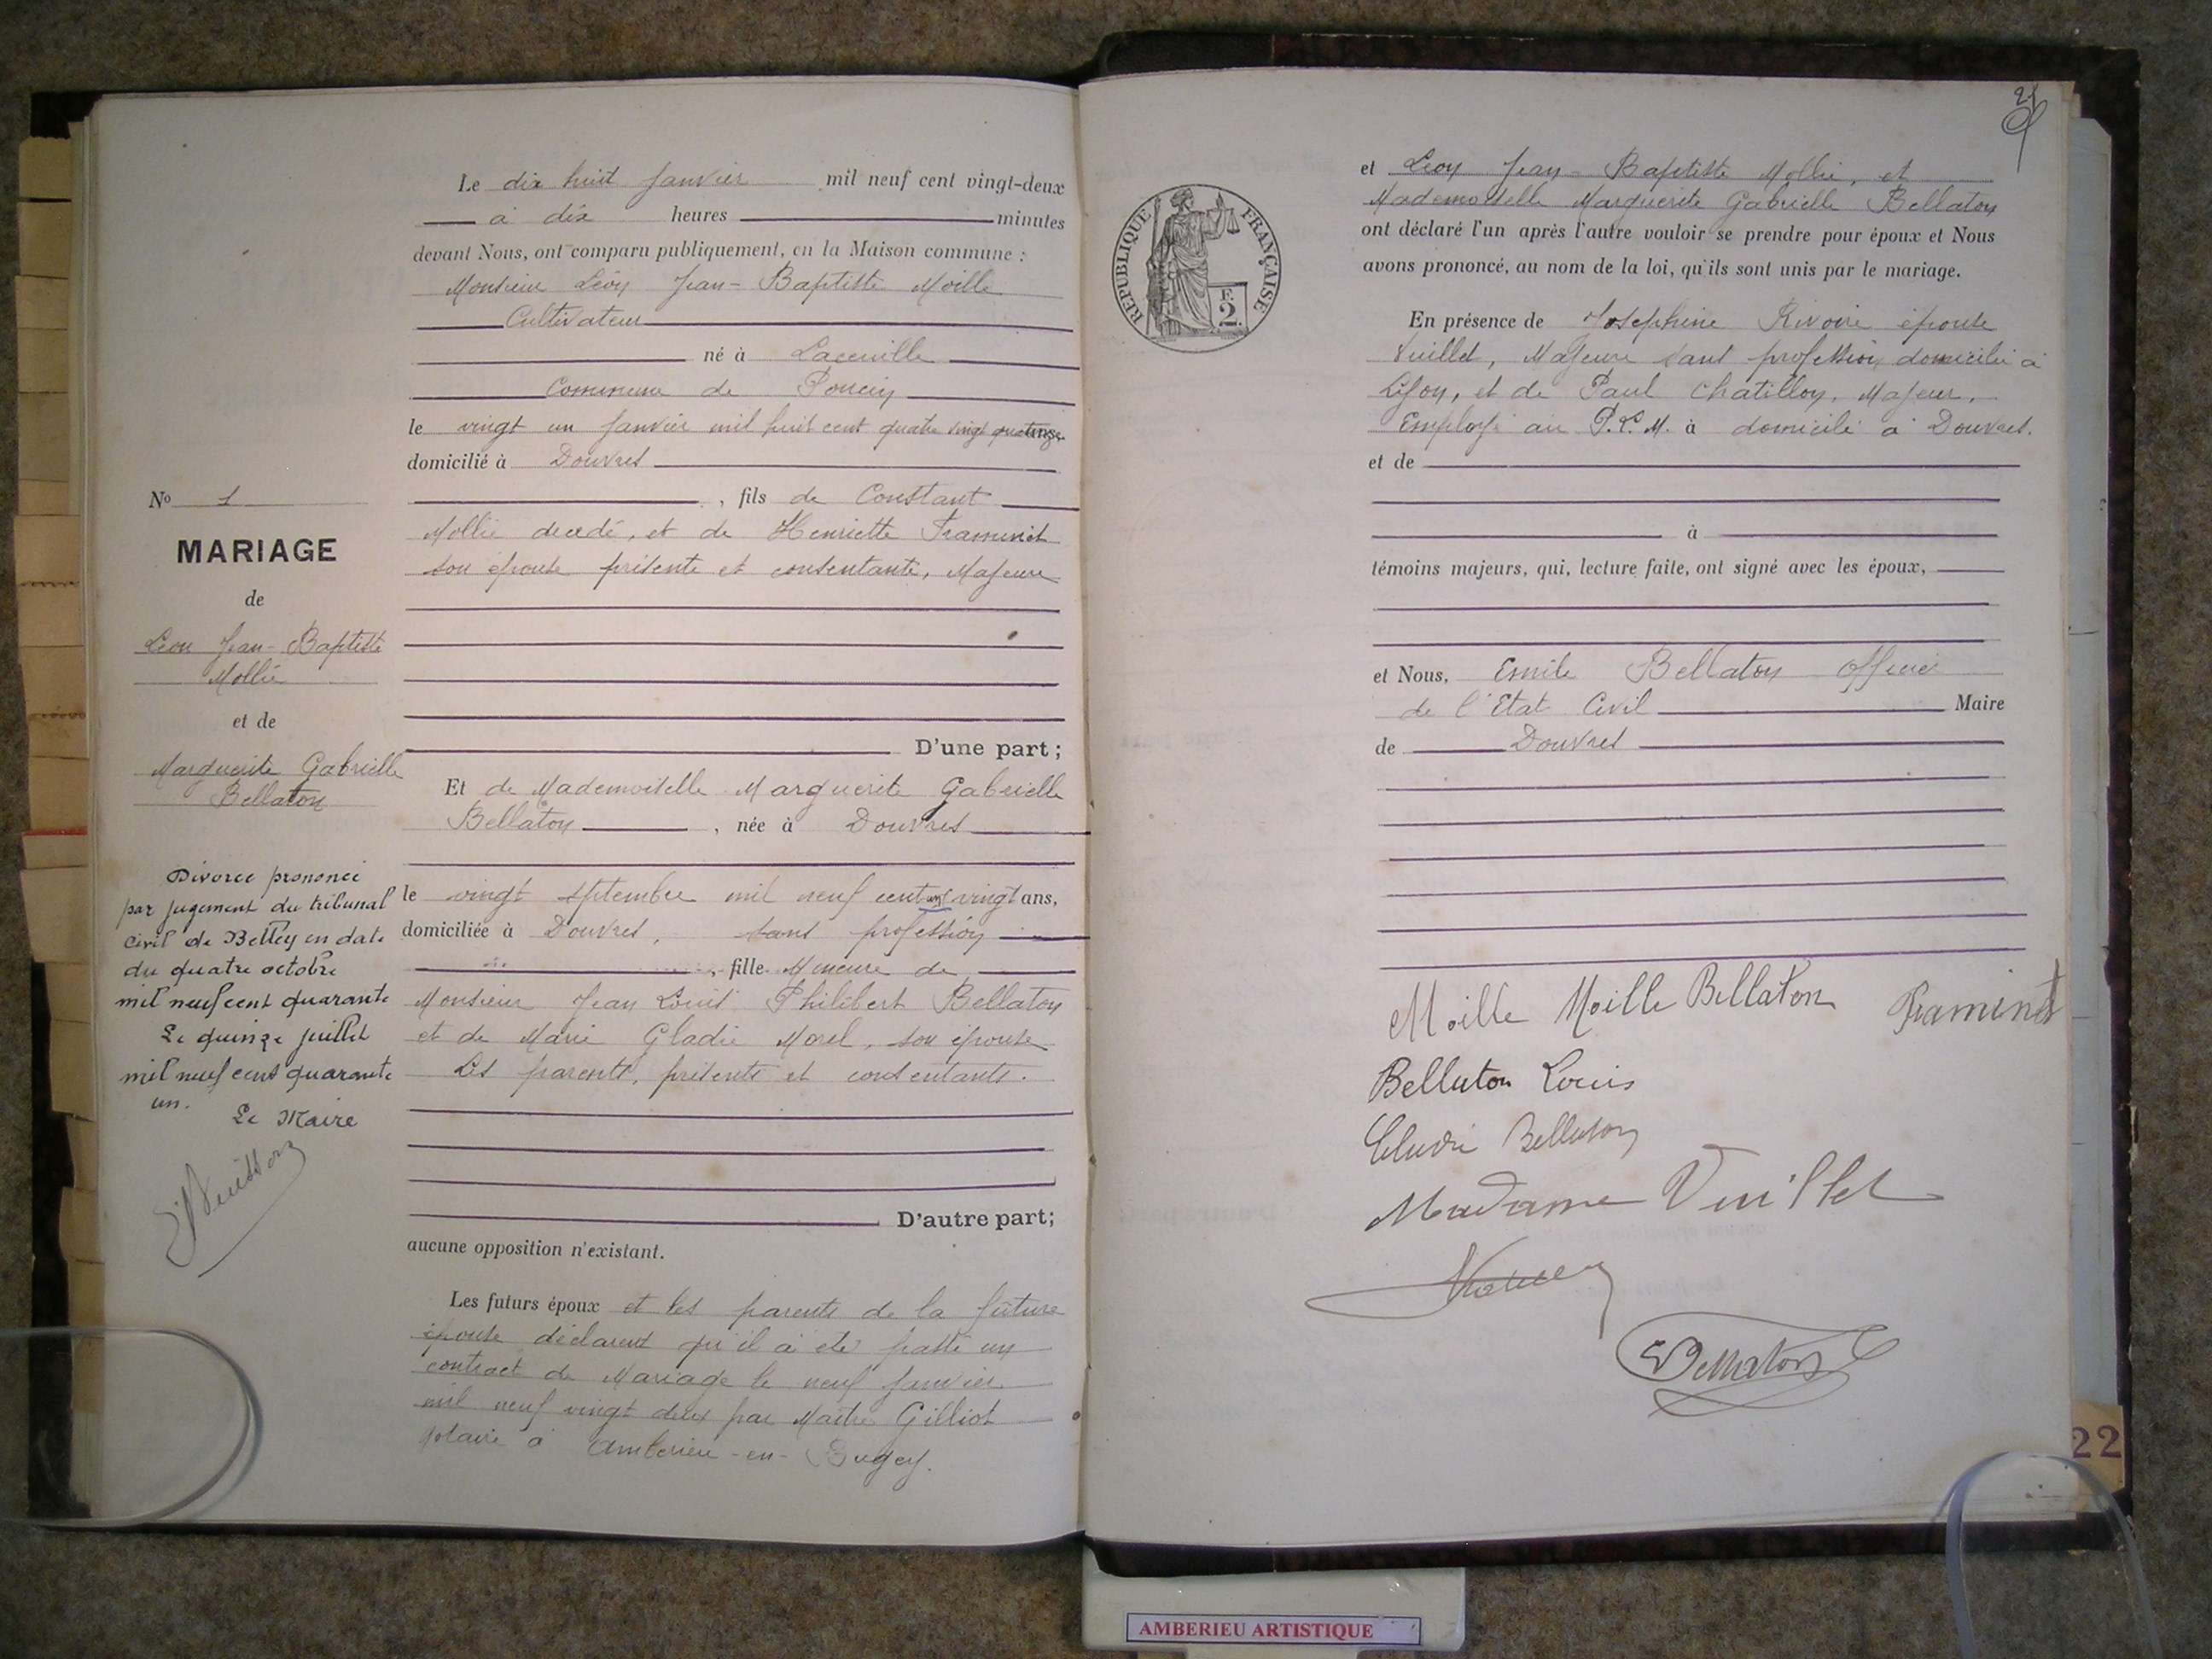 Le dix huit Janvier mil neuf cent vingt-deux
à dix heures minutes
devant Nous, ont comparu publiquement, en la Maison commune :
Monsieur Léon Jean-Baptiste Moille
Cultivateur
né à
Commune de Poncin
le vingt un Janvier mil huit cent quatre vingt quatorze
domicilié à Douvres
, fils de Constant
Mollie décédé, et de Henriette Framinet
son épouse présente et consentante, Majeure
D'une part ;
Et de Mademoiselle Marguerite Gabrielle
Bellaton , née à Douvres
le vingt septembre mil neuf cent un vingt ans,
domiciliée à Douvres, sans profession
, fille Mineure de
Monsieur Jean Louis Philibert Bellaton
et de Marie Gladie Morel, son épouse
Les parents, présents et consentants.
D'autre part;
aucune opposition n'existant.
Les futurs époux et les parents de la future
épouse déclarent qu'il a été passé un
contract de Mariage le neuf Janvier
mil neuf vingt deux par Maître Gilliot
notaire à Ambérieu-en-Bugey.
No 1
MARIAGE
de
Léon Jean-Baptiste
Mollié
et de
Marguerite Gabrielle
Bellaton
Divorce prononcé
par jugement du tribunal
civil de Belley en date
du quatre octobre
mil neuf cent quarante
Le quinze juillet
mil neuf cent quarante
un.
Le Maire
21
RÉPUBLIQUE FRANÇAISE
F
2
et Léon Jean-Baptiste Mollie, et
Mademoiselle Marguerite Gabrielle Bellaton
ont déclaré l'un après l'autre vouloir se prendre pour époux et Nous
avons prononcé, au nom de la loi, qu'ils sont unis par le mariage.
En présence de Joséphine Rivoire épouse
Vuillet, Majeure sans profession, domicilié à
Lyon, et de Paul Chatillon, Majeur,
Employé au P.L.M. à domicilié à Douvres.
et de
à
témoins majeurs, qui, lecture faite, ont signé avec les époux,
et Nous, Emile Bellaton Officier
de l'Etat Civil Maire
de Douvres
Moille Moille Bellaton Framinet
Bellaton Louis
Bellaton
Madame Vuillet
EBellaton
22
AMBERIEU ARTISTIQUE